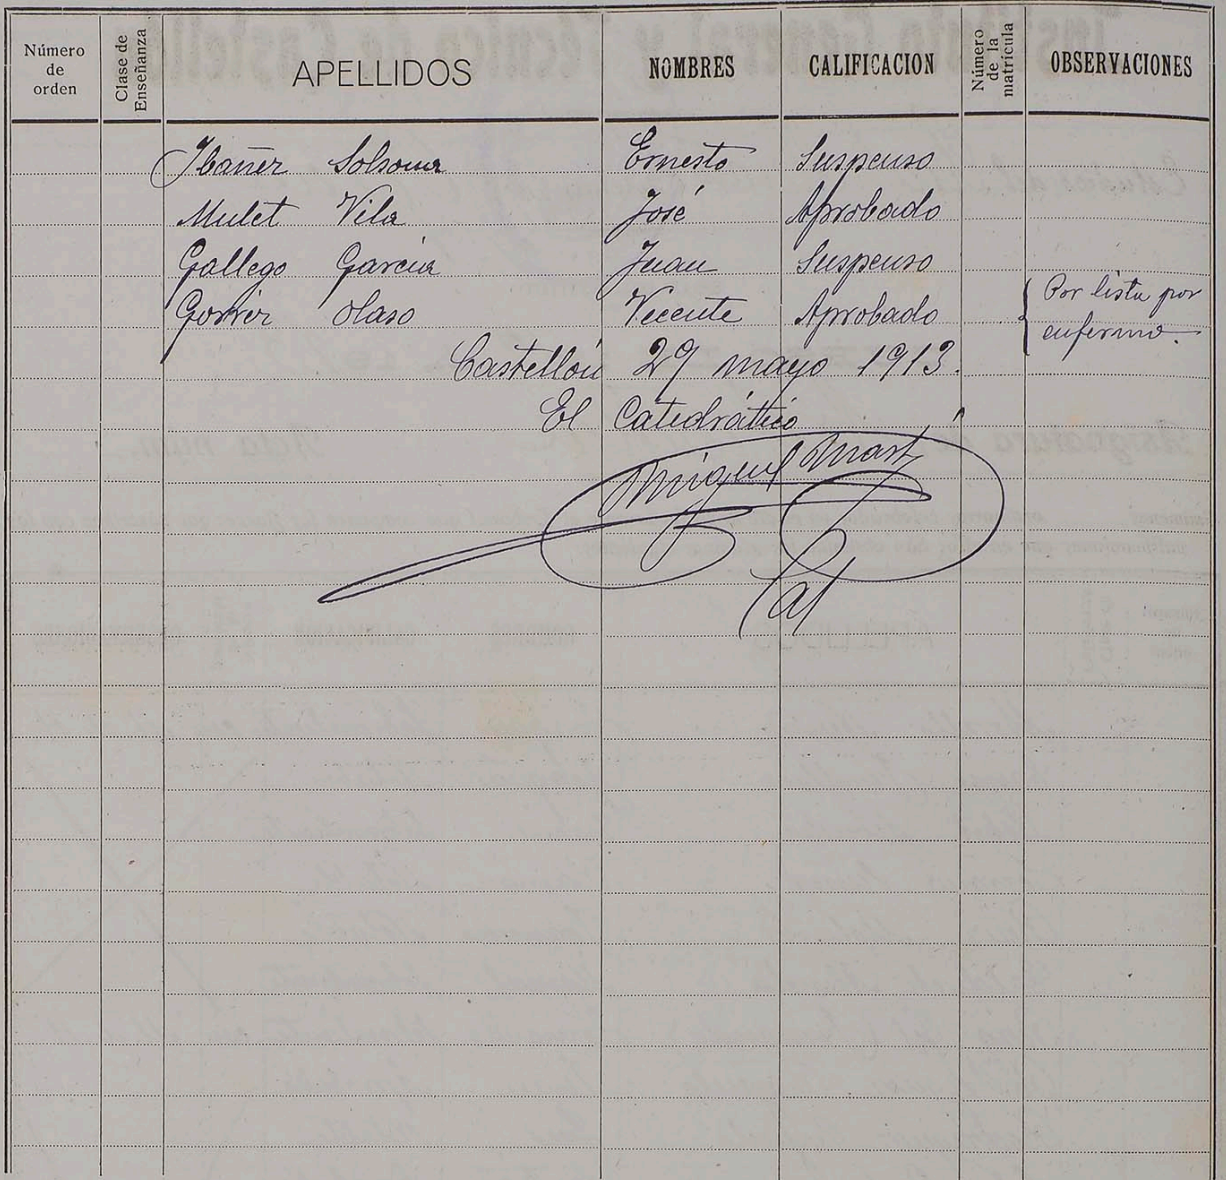 Número de orden Clase de Enseñanza APELLIDOS NOMBRES CALIFICACION Número de la matrícula OBSERVACIONES
Ibañez Solsona Ernesto Suspenso
Mulet Vila José Aprobado
Gallego García Juan Suspenso
Gorriz Olaso Vicente Aprobado Por lista por enfermo.
Castellón 29 mayo 1913.
El Catedrático
Miguel Martí